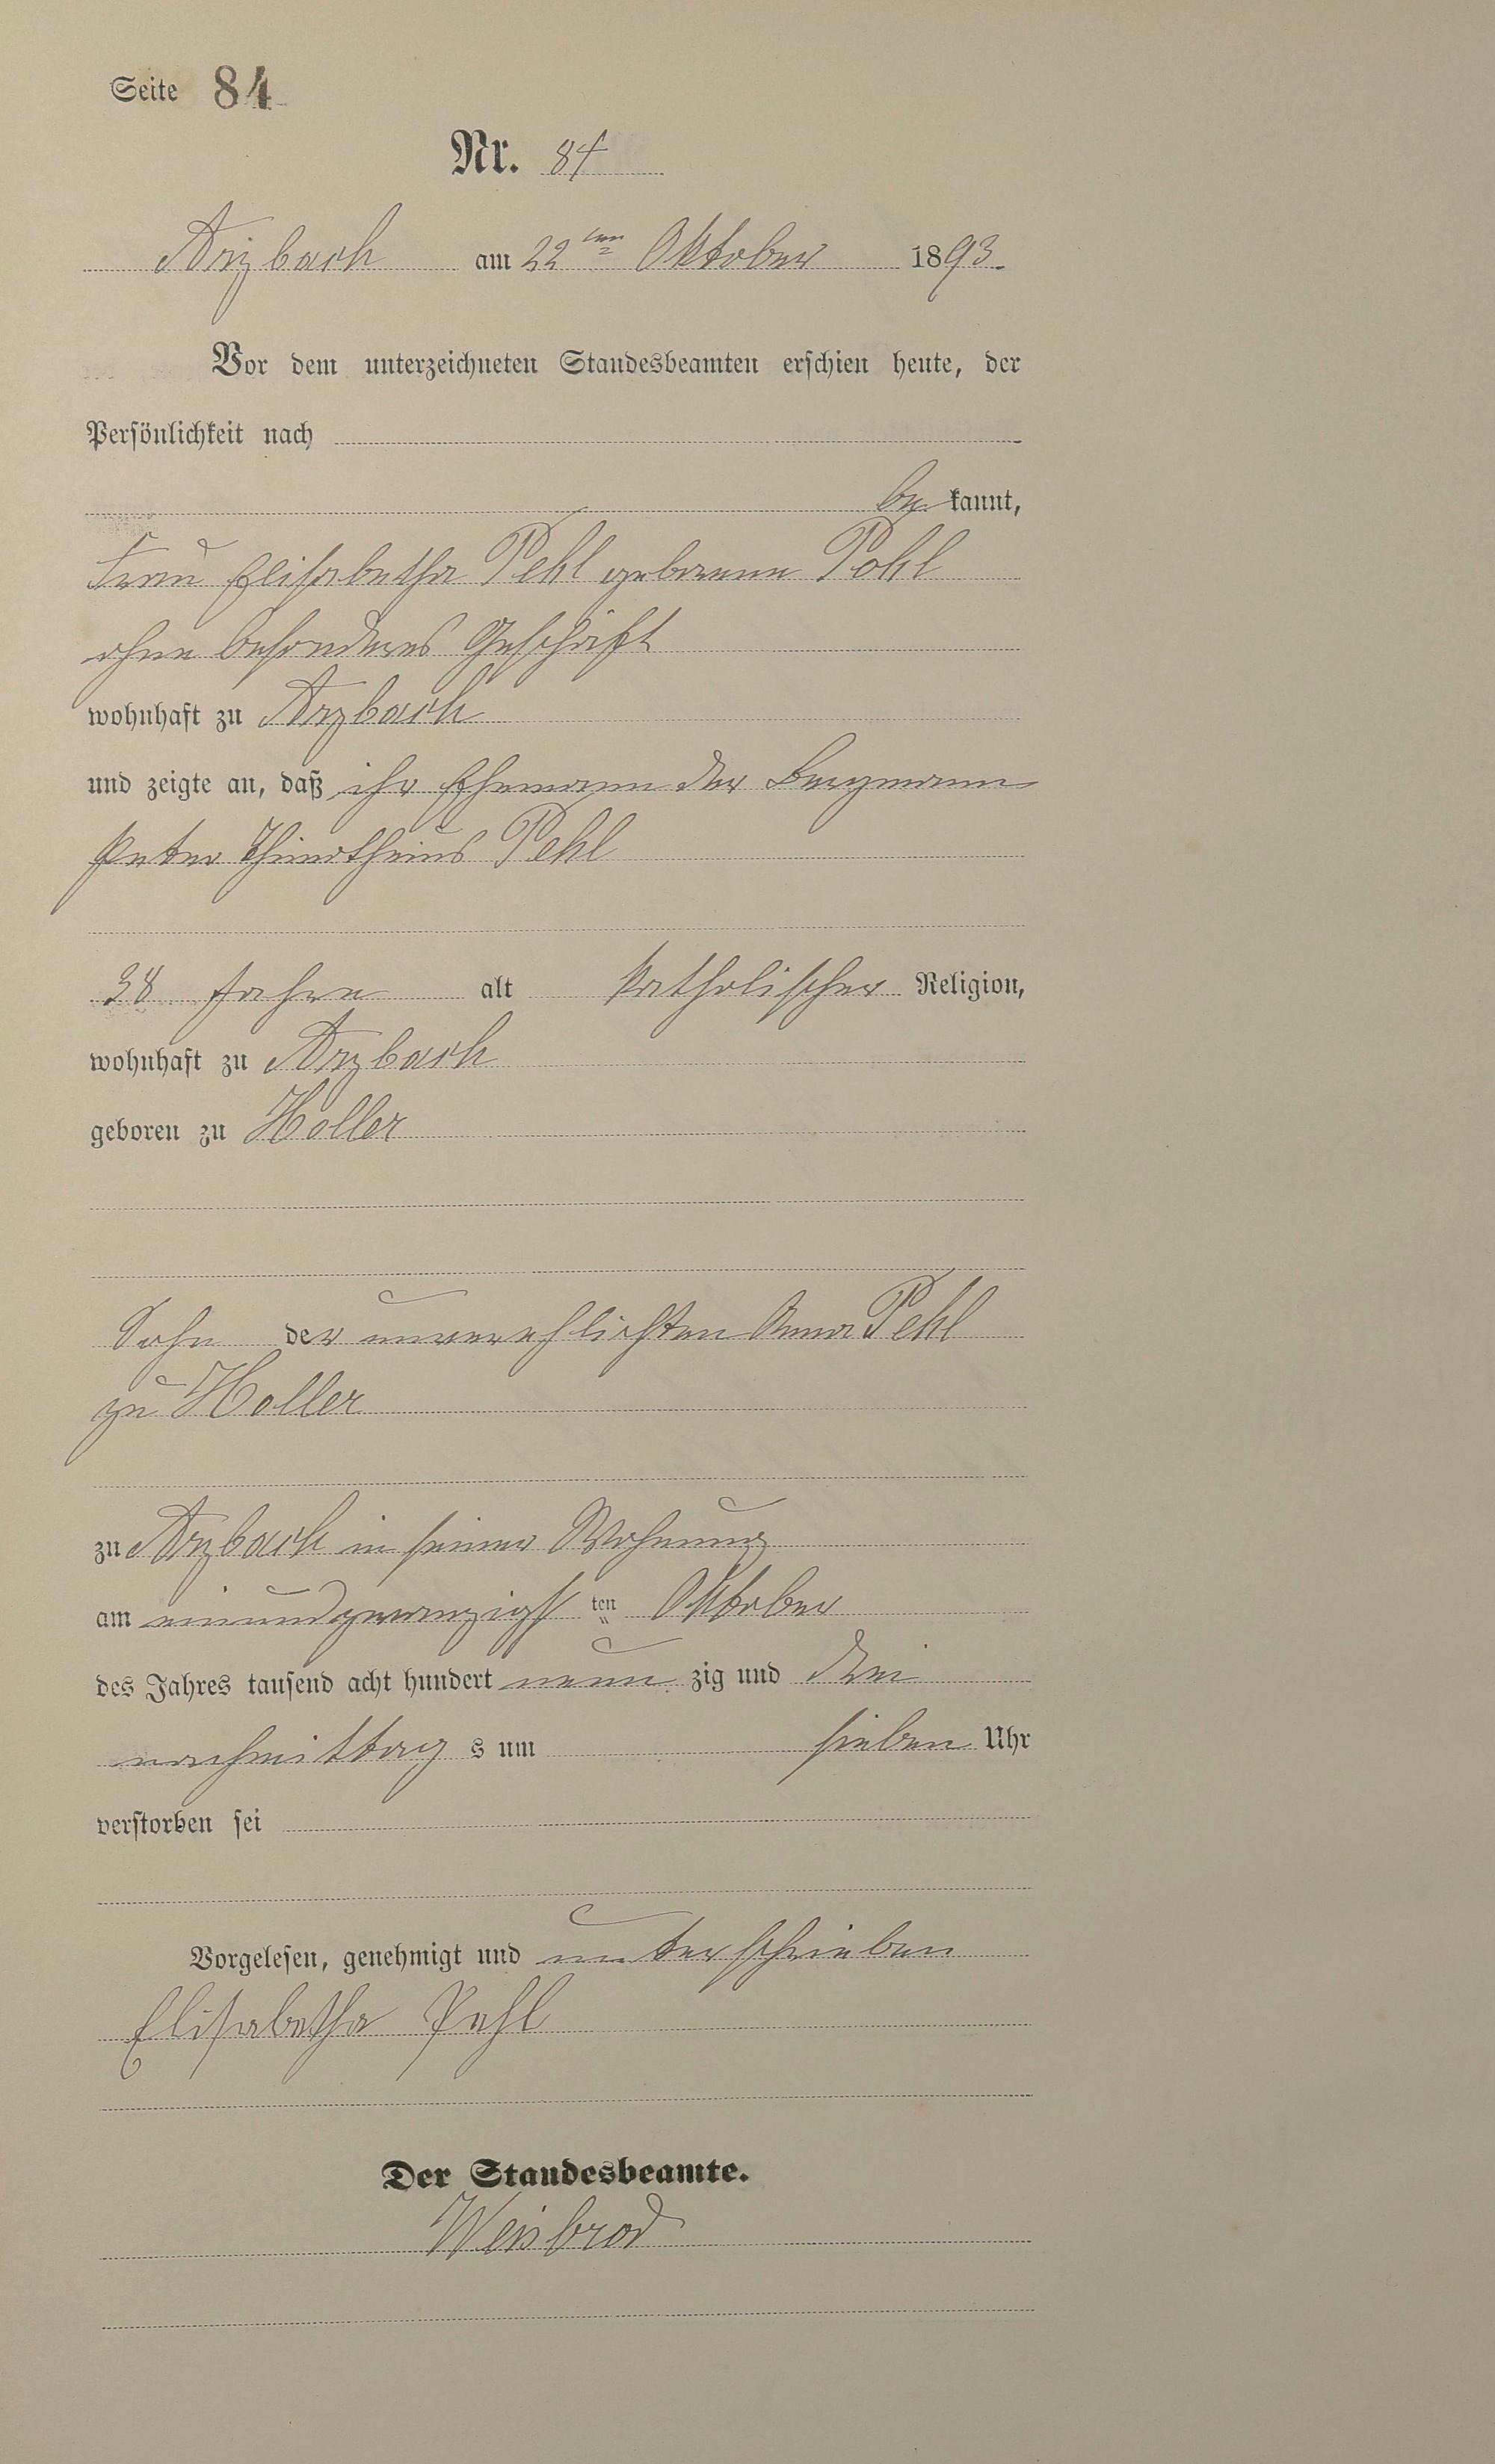 Seite 84
Nr. 84
Arzbach am 22ten Oktober 1893.
Vor dem unterzeichneten Standesbeamten erschien heute, der
Persönlichkeit nach
be kannt,
Frau Elisabetha Pehl geborene Pohl
ohne besonderes Geschäft
wohnhaft zu Arzbach
und zeigte an, daß ihr Ehemann der Bergmann
Peter Thimotheus Pehl
38 Jahre alt katholischer Religion,
wohnhaft zu Arzbach
geboren zu Holler
Sohn der unverehlichten Anna Pehl
zu Holler
zu Arzbach in seiner Wohnung
am einundzwanzigst ten Oktober
des Jahres tausend acht hundert neun zig und drei
nachmittag s um sieben Uhr
verstorben sei
Vorgelesen, genehmigt und unterschrieben
Elisabetha Pehl
Der Standesbeamte.
Weisbrod